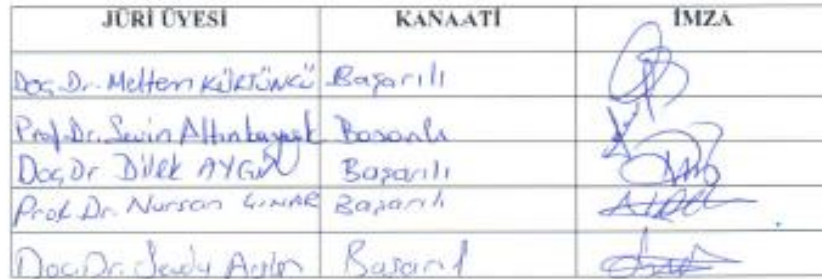 JÜRİ ÜYESİ KANAATİ İMZA
Doç. Dr. Meltem KÜRTÜNCÜ Başarılı
Prof. Dr. Sevin Altınkaynak Başarılı
Doç. Dr. Dilek AYGİN Başarılı
Prof. Dr. Nursan ÇINAR Başarılı
Doç. Dr. Başarılı